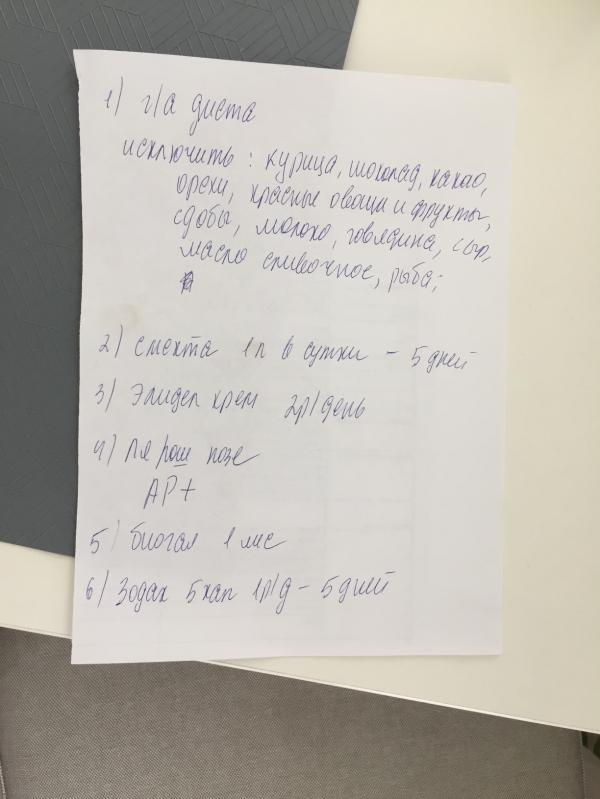 1) г/а диета
исключить: курица, шоколад, какао,
орехи, красные овощи и фрукты,
сдобы, молоко, говядина, сыр,
масло сливочное, рыба;
2) смекта 1п в сутки - 5 дней
3) Элидел крем 2р/день
4) Ля рош позе
АР+
5) биогая 1 мес
6) Зодак 5 кап 1р/д - 5 дней